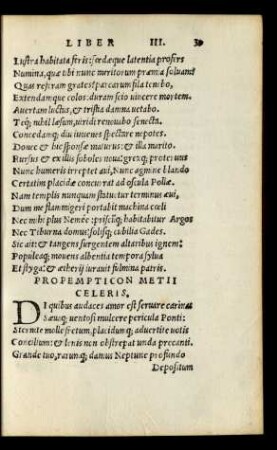 LIBER III. 3
Lustra habitata feris: foedaque latentia profers
Numina, qua tibi nunc meritorum præmia soluam?
Quas referam grates? parcarum fila tenebo,
Extendamque colos: duram scio uincere mortem.
Auertam luctus, & tristia damna uetabo.
Teq; nihil læsum, uiridi renouabo senecta.
Concedamq; diu iuuenes spectare nepotes.
Donec & hic sponsæ maturus: & illa marito.
Rursus & ex illis soboles noua: grexq; proteruus
Nunc humeris irreptet aui, Nunc agmine blando
Certatim placidæ concurrat ad oscula Pollæ.
Nam templis nunquam statuetur terminus aui,
Dum me flammigeri portabit machina cæli
Nec mihi plus Nemée: priscúq; habitabitur Argos
Nec Tiburna domus: solisq; cubilia Gades.
Sic ait: & tangens surgentem altaribus ignem:
Populeaq; mouens albentia tempora sylua
Et styga: & ætherij iurauit fulmina patris.
PROPEMPTICON METII
CELERIS.
DI quibus audaces amor est seruare carinas
Sæuaq; uentosi mulcere pericula Ponti:
Sternite molle fretum, placidumq; aduertite uotis
Concilium: & lenis non obstrepat unda precanti.
Grande tuo, rarumq; damus Neptune profundo
Depositum